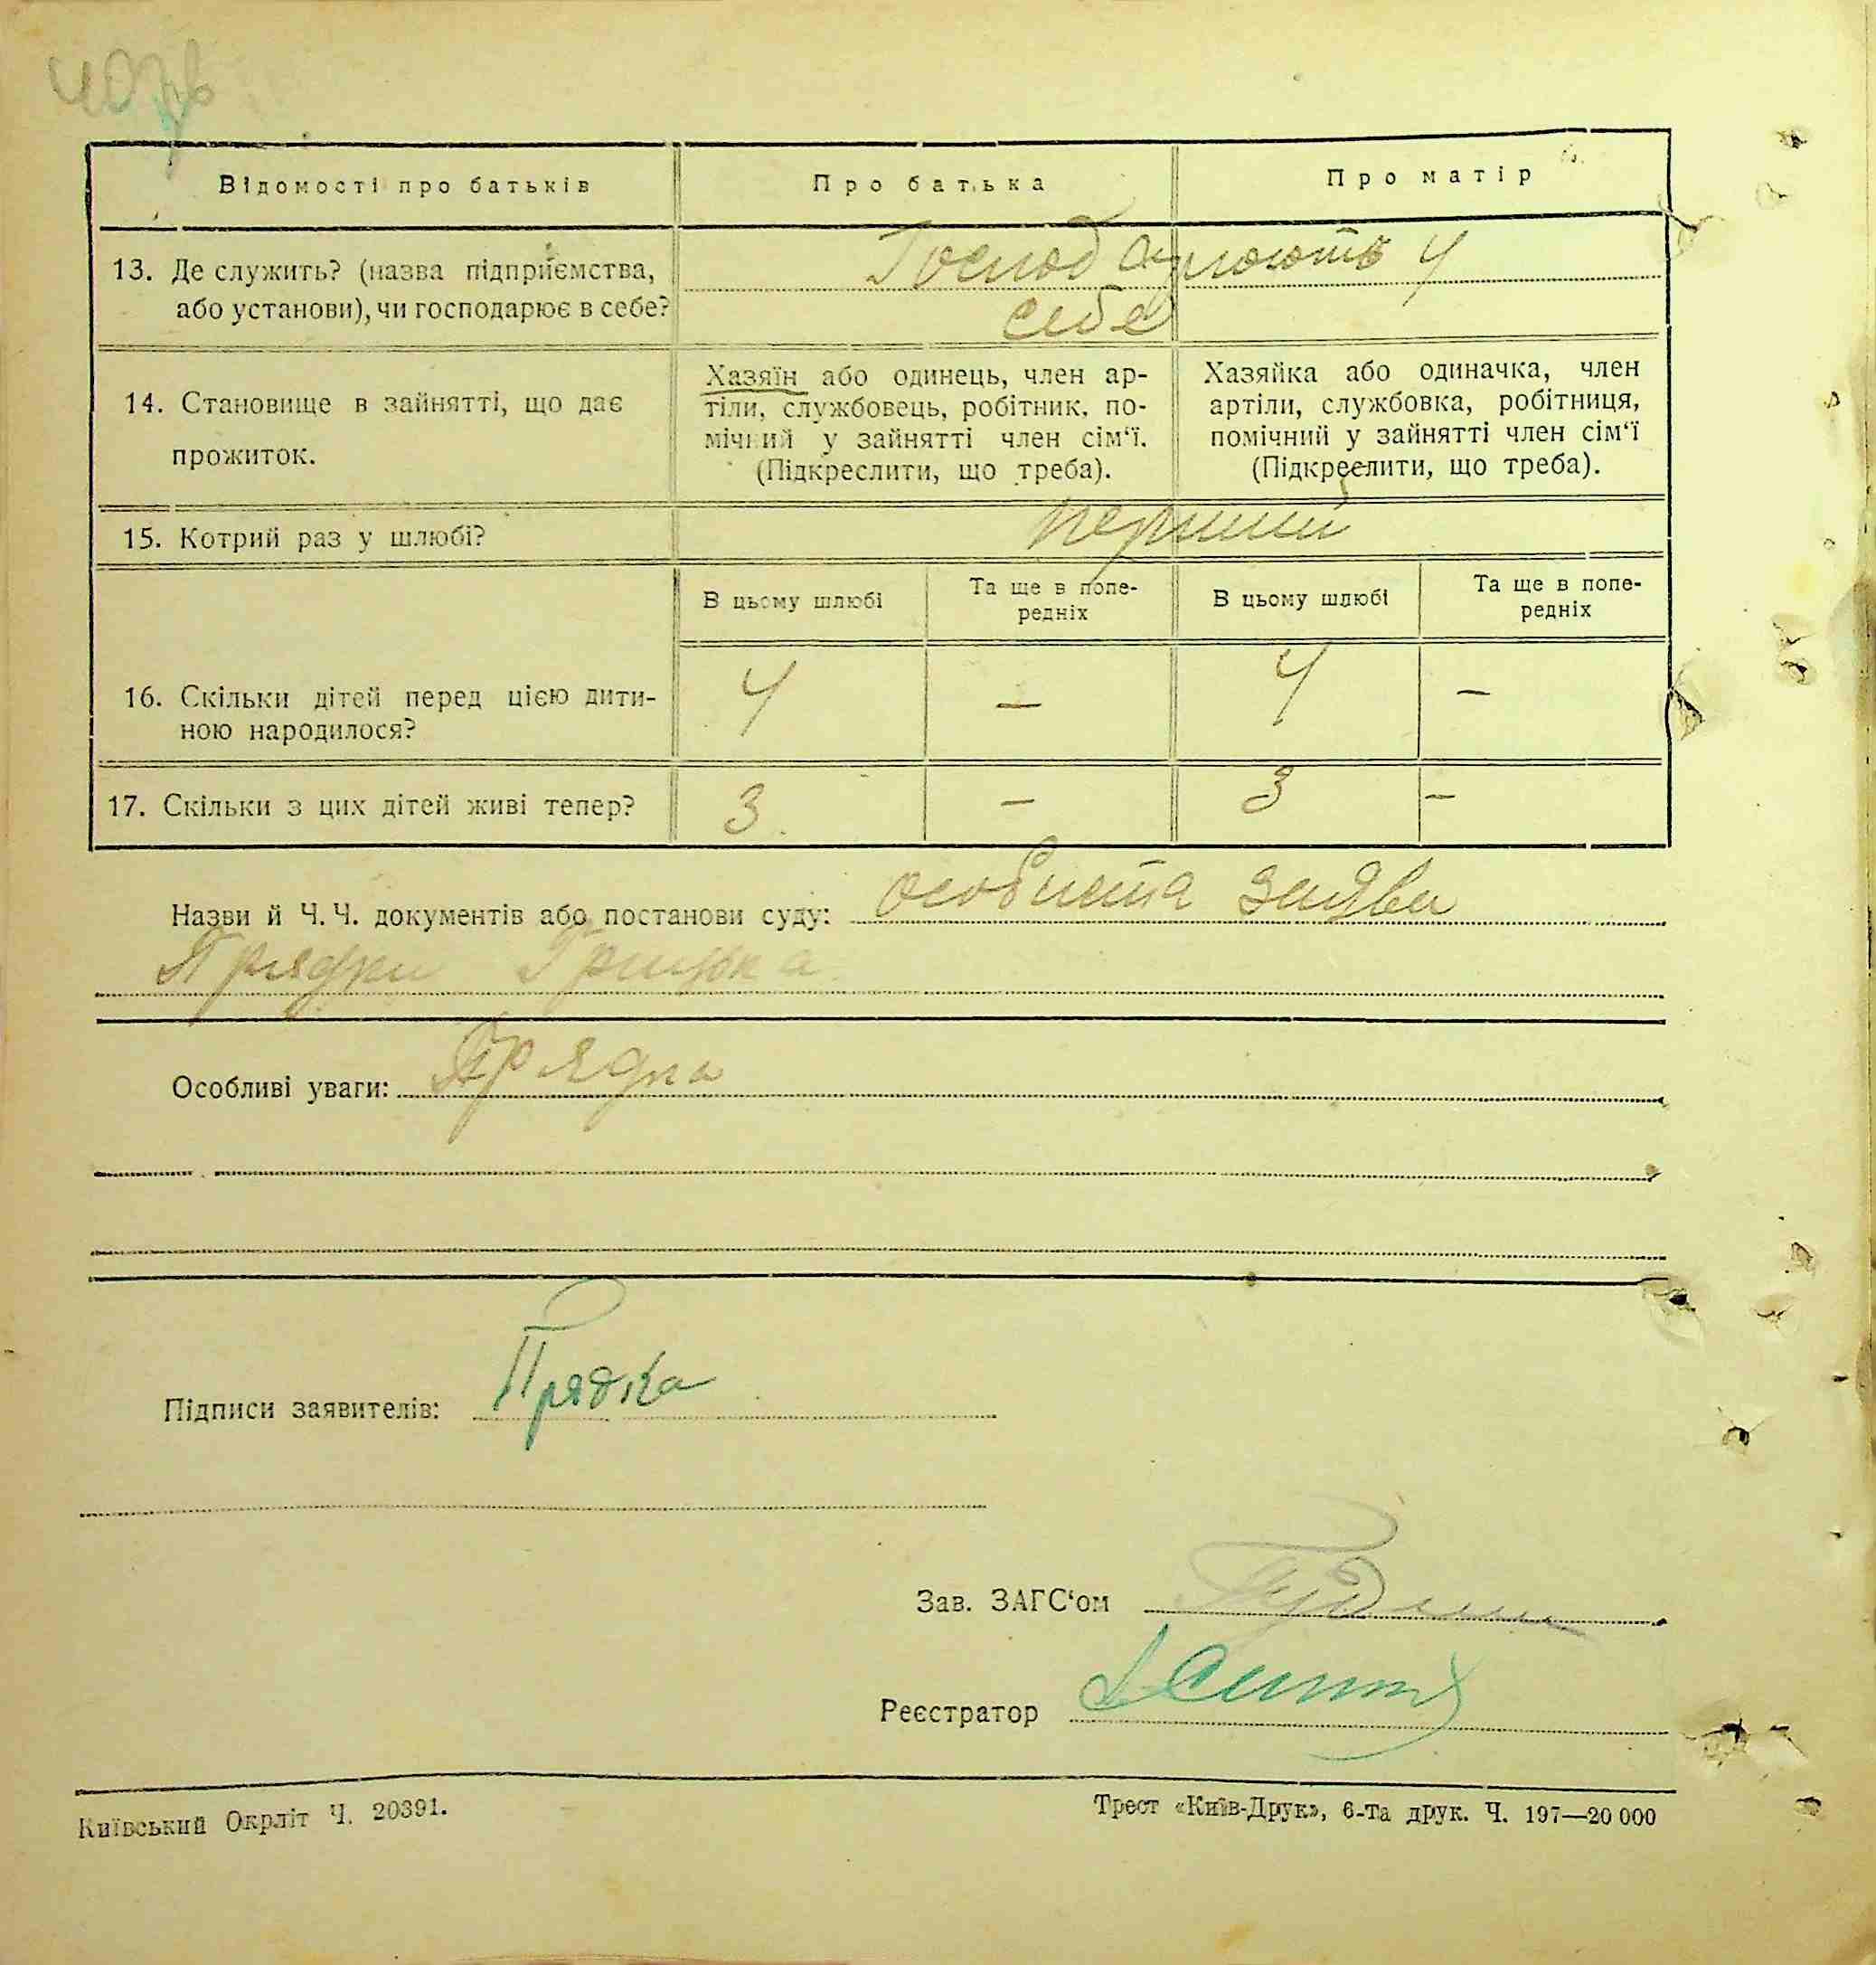 407в
Відомості про батьків Про батька Про матір
13. Де служить? (назва підприємства, Господарюють у
або установи), чи господарює в себе? себе
14. Становище в зайнятті, що дає
прожиток.
Хазяїн або одинець, член ар-
тіли, службовець, робітник, по-
мічний у зайнятті член сім‘ї.
(Підкреслити, що треба).
Хазяйка або одиначка, член
артіли, службовка, робітниця,
помічний у зайнятті член сім‘ї
(Підкреслити, що треба).
15. Котрий раз у шлюбі? перший
В цьому шлюбі Та ще в попе-
редніх В цьому шлюбі Та ще в попе-
редніх
16. Скільки дітей перед цією дити-
ною народилося? 4 — 4 —
17. Скільки з цих дітей живі тепер? 3 — 3 —
Назви й Ч.Ч. документів або постанови суду: особиста заява
Прядки Грицька
Особливі уваги: Прядка
Підписи заявителів: Прядка
Зав. ЗАГС‘ом
Реєстратор
Київський Окрліт Ч. 20391.
Трест «Київ-Друк», 6-та друк. Ч. 197—20 000